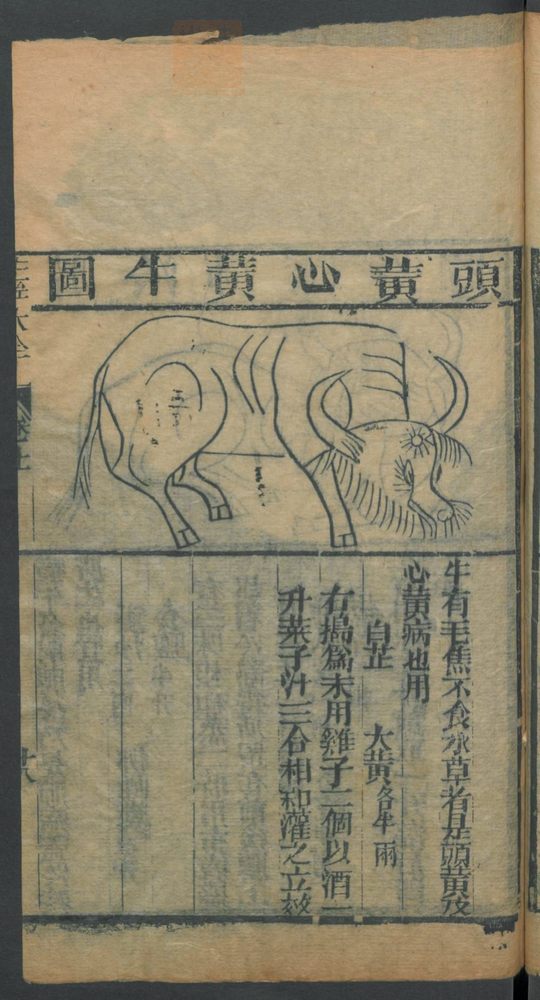 頭黃心黃牛圖
牛有毛焦不食水草者是頭黃及
心黃病也用
白芷　大黃各半兩
右搗爲末用雞子二個以酒一
升菜子汁三合相和灌之立效
大全
卷上